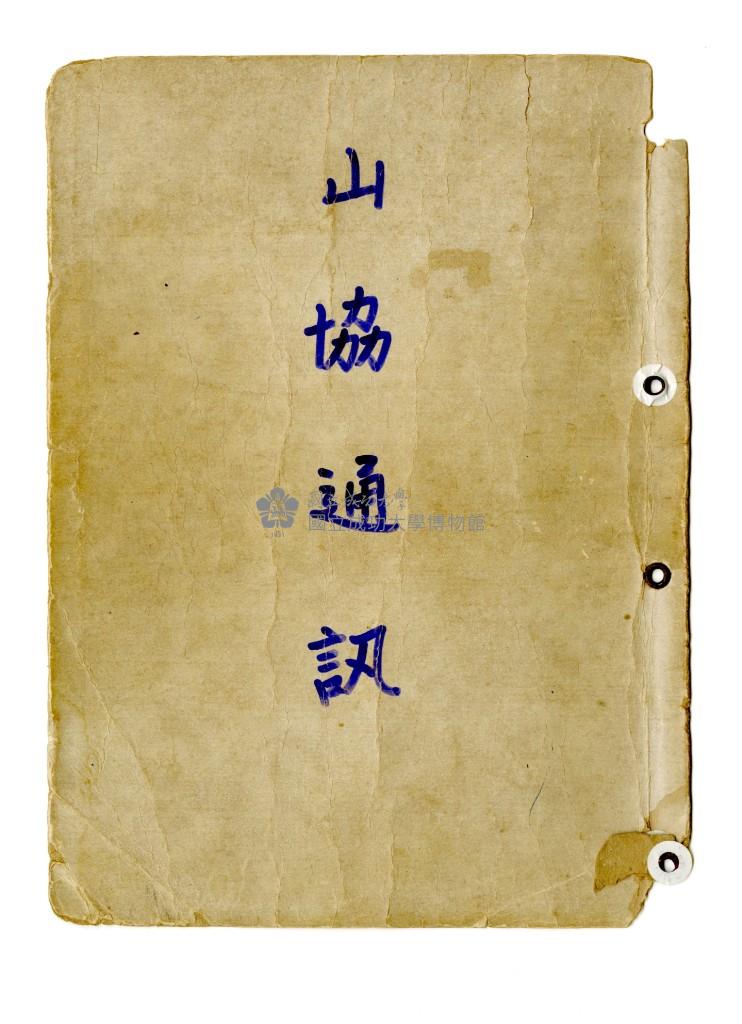 山協通訊
國立成功大學博物館